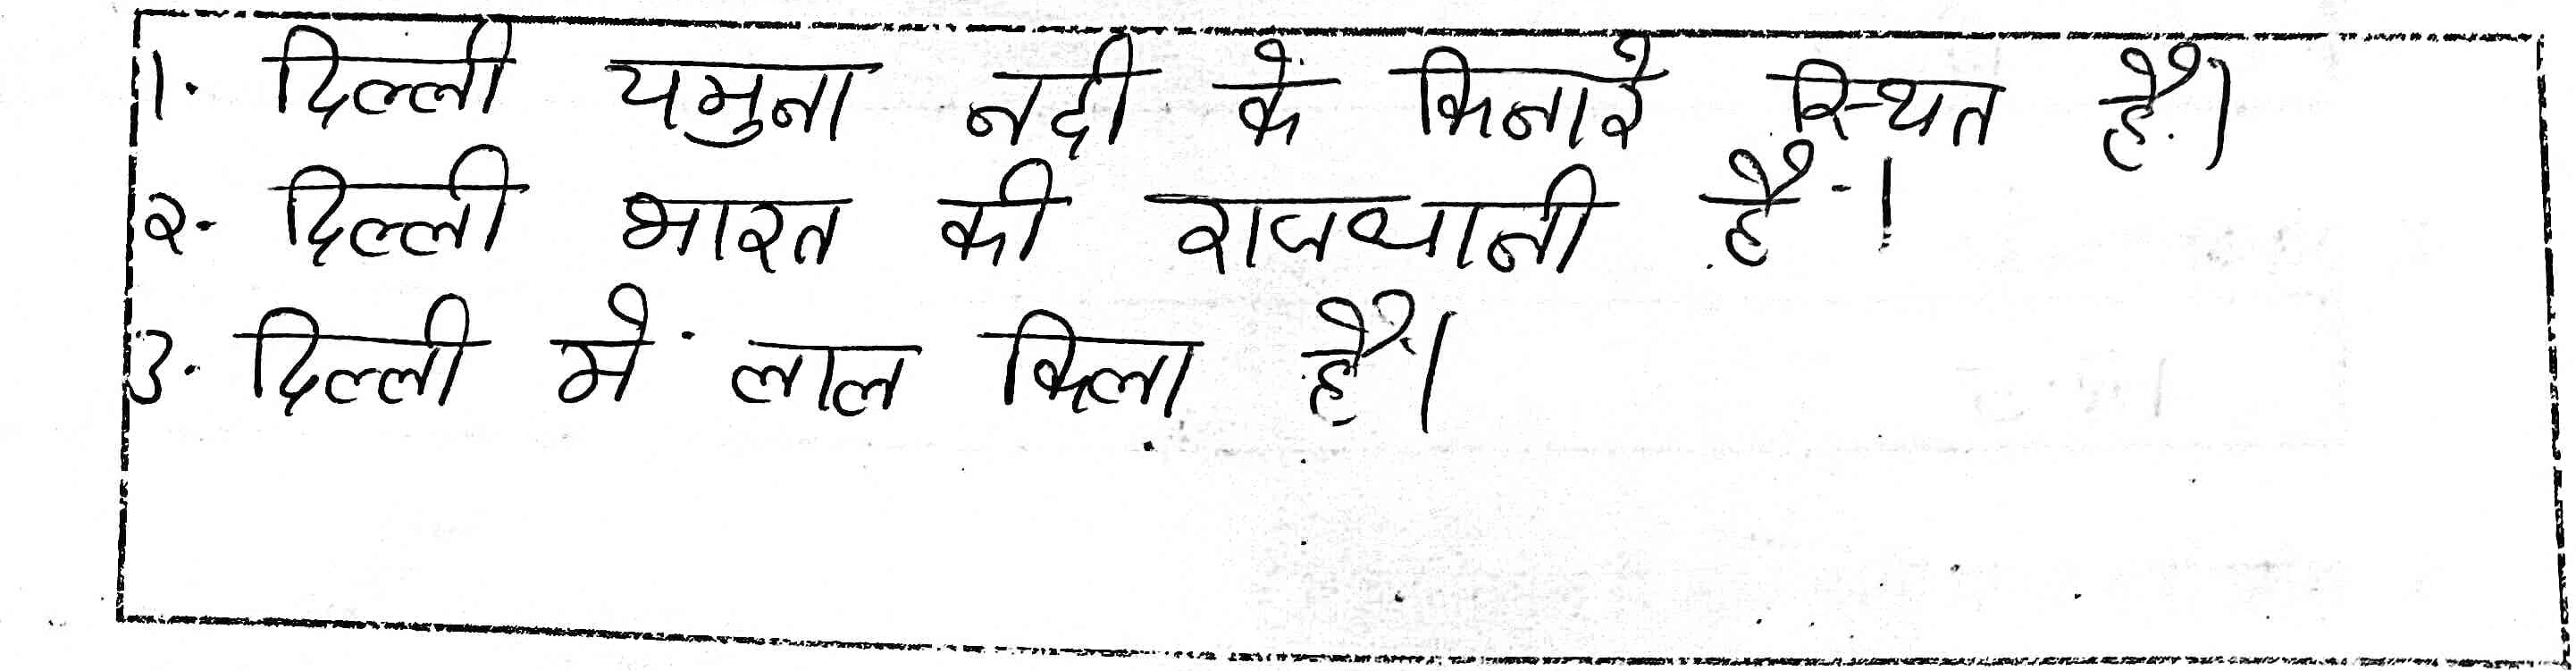 1. दिल्ली यमुना नदी के किनारे स्थित है।
२. दिल्ली भारत की राजधानी है।
3. दिल्ली में लाल किला है।